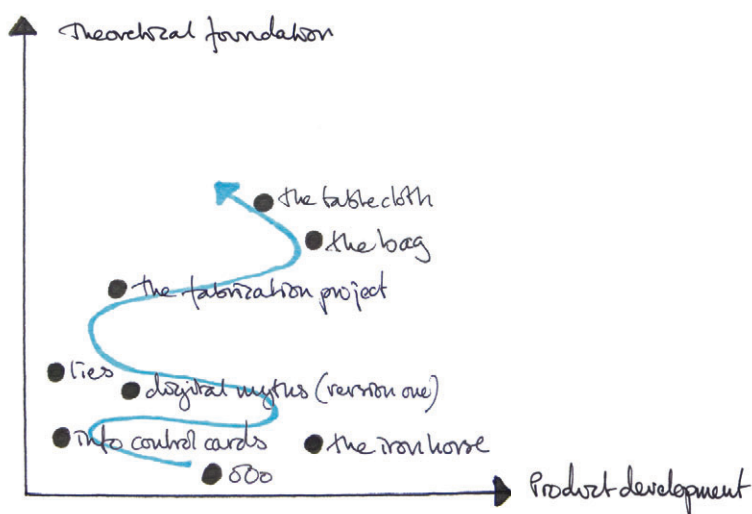 Theoretical foundation
the tablecloth
the bag
the fabrization project
lies
digital myths (version one)
info control cards
the iron horse
ooo
Product development